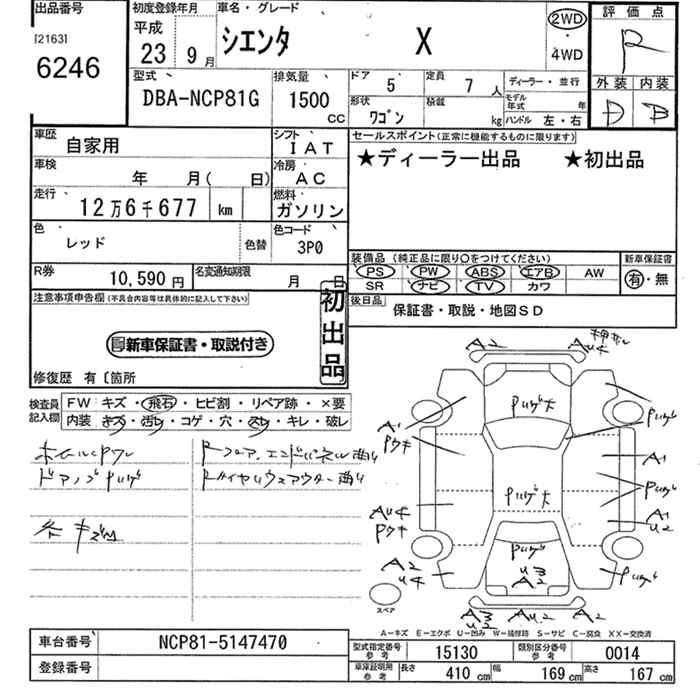 出品番号
[2163]
6246
初度登録年月
平成
23年 9月
車名・グレード
シエンタ X
2WD
・
4WD
評価点
R
外装 内装
D D
型式
DBA-NCP81G
排気量
1500
cc
ドア 5
定員 7 人
形状 ワゴン
積載 kg
ディーラー・並行
モデル年式 年
ハンドル 左・右
車歴 自家用
シフト IAT
車検 年 月( 日)
冷房 AC
走行 12万6千677 km
燃料 ガソリン
色 レッド 色替
色コード 3P0
R券 10,590円
名変通知期限 月 日
セールスポイント(正常に機能するものに限ります)
★ディーラー出品 ★初出品
装備品 (純正品に限り○をつけてください)
PS PW ABS エアB AW
SR ナビ TV カワ
新車保証書
有・無
後日品
保証書・取説・地図SD
注意事項申告欄(不具合内容等は具体的に記入して下さい)
新車保証書・取説付き
初出品
修復歴 有〔箇所
検査員記入欄
FW キズ・飛石・ヒビ割・リペア跡・×要
内装・キズ・汚れ・コゲ・穴・スレ・キレ・破レ
ドアノブPサゲ
各キズ凹
A2
A4
Pサゲ大
A1
Pサゲ
A1
Pサゲ
Pサゲ大
A1
U2
A2
U4
Pサゲ
U3
A2
Pサゲ
A3
U2
AU2
A2
スペア
A－キズ E－エクボ U－凹み W－補修跡 S－サビ C－腐食 XX－交換済
車台番号 NCP81-5147470
登録番号
型式指定番号 参考 15130
類別区分番号 参考 0014
車庫証明用 参考 長さ 410 cm 幅 169 cm 高さ 167 cm